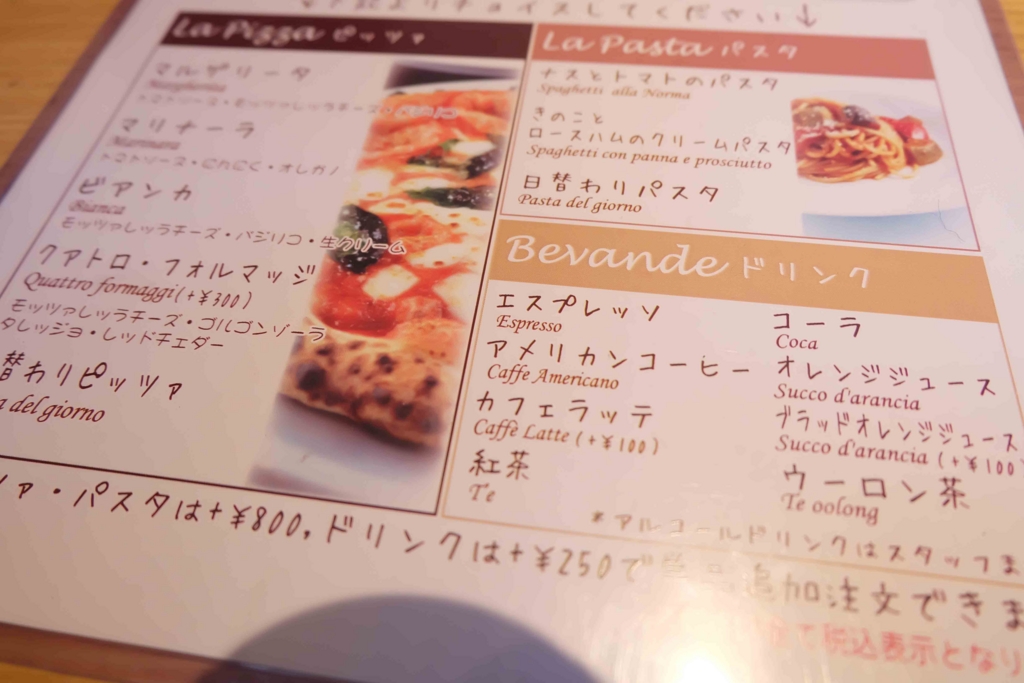 下記よりチョイスしてください↓
La Pizza ピッツァ
マルゲリータ
Margherita
トマトソース・モッツァレッラチーズ・
マリナーラ
Marinara
トマトソース・にんにく・オレガノ
ビアンカ
Bianca
モッツァレッラチーズ・バジリコ・生クリーム
クアトロ・フォルマッジ
Quattro formaggi(+¥300)
モッツァレッラチーズ・ゴルゴンゾーラ
タレッジョ・レッドチェダー
替わりピッツァ
del giorno
La Pasta パスタ
ナスとトマトのパスタ
Spaghetti alla Norma
きのこと
ロースハムのクリームパスタ
Spaghetti con panna e prosciutto
日替わりパスタ
Pasta del giorno
Bevande ドリンク
エスプレッソ
Espresso
アメリカンコーヒー
Caffe Americano
カフェラッテ
Caffè Latte (+¥100)
紅茶
Te
コーラ
Coca
オレンジジュース
Succo d'arancia
ブラッドオレンジジュース
Succo d'arancia (+¥100
ウーロン茶
Te oolong
*アルコールドリンクはスタッフま
ァ・パスタは+¥800,ドリンクは+¥250で単品追加注文できま
税込表示となり